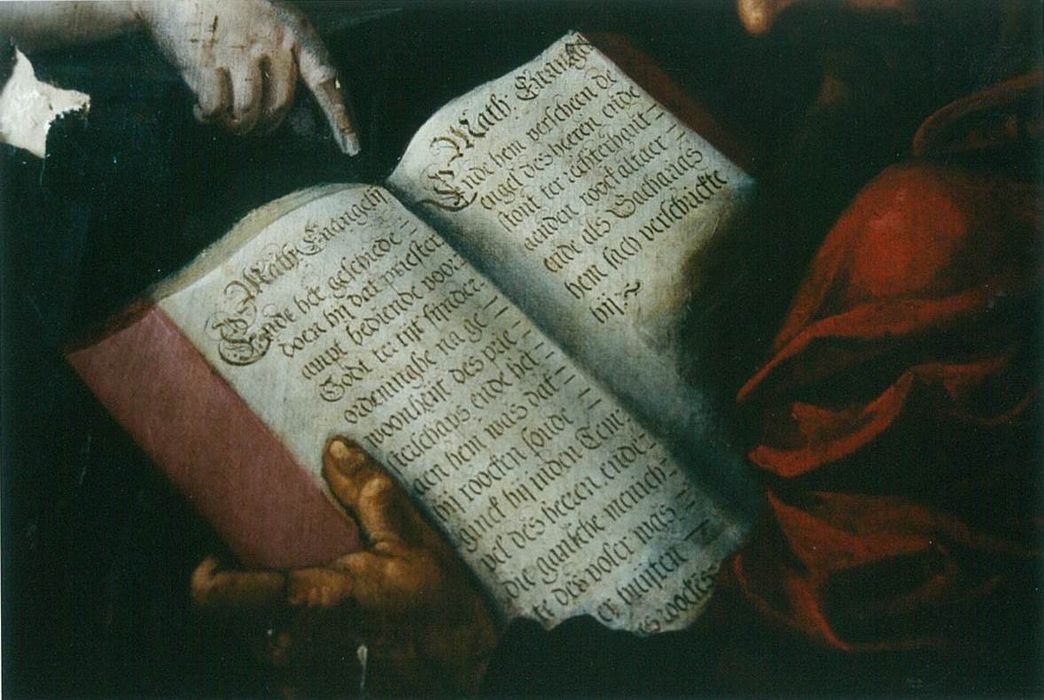 Math: Euangelij
Ende het geschiede
doen hij dat priester
ampt bediende voor
Godt te rijt sinder
ordeninghe na ge
woonheijt des prie
sterschaps ende het
aen hem was dat
hij roocken soude
ginck hij inden Tem
pel des heeren ende
die gantsche menich
te des volcx was
er buijten
s roockes
Math: Euangel
Ende hem verscheen de
engel des heeren ende
stont ter rechterhant
aanden roock altaer
ende als Sacharias
hem sach verschrickte
hij